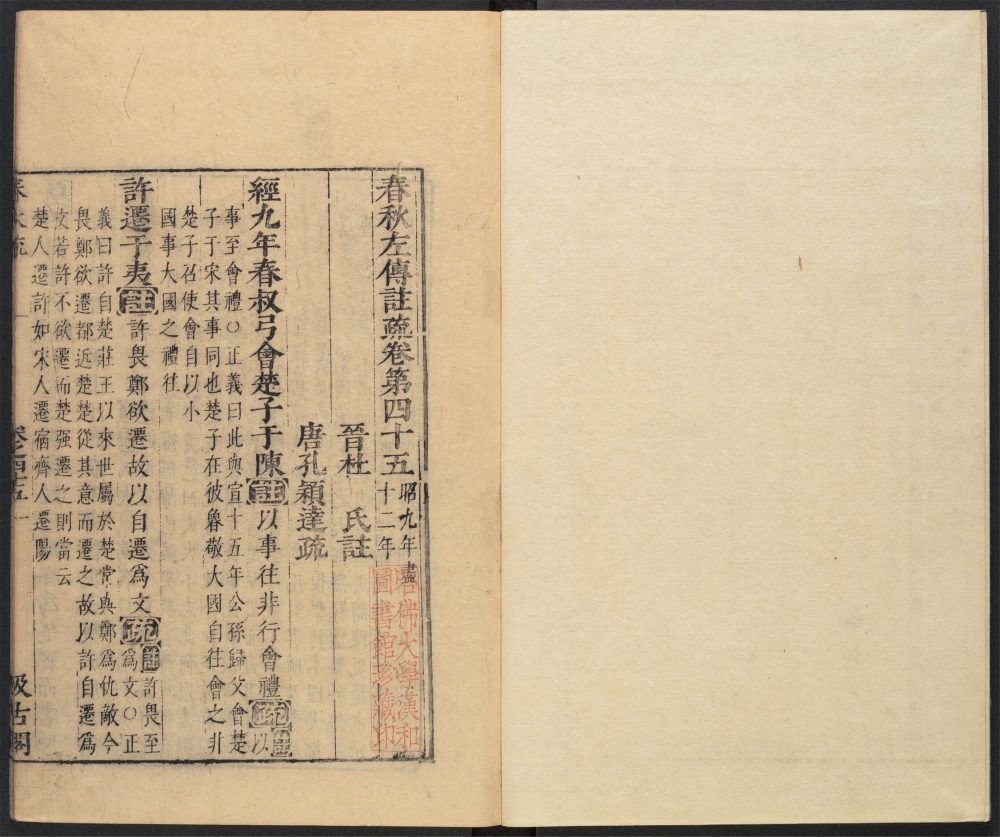 春秋左傳註疏卷第四十五 昭九年盡
十二年
晉杜 氏註
唐孔穎達疏
經九年春叔弓會楚子于陳註以事往非行會禮疏註以
事至會禮○正義曰此與宣十五年公孫歸父會楚
子于宋其事同也楚子在彼魯敬大國自往會之非
楚子召使會自以小
國事大國之禮往
許遷于夷註許畏鄭欲遷故以自遷爲文疏註許畏至
爲文○正
義曰許自楚莊王以來世屬於楚常與鄭爲仇敵今
畏鄭欲遷都近楚楚從其意而遷之故以許自遷爲
文若許不欲遷而楚强遷之則當云
楚人遷許如宋人遷宿齊人遷陽
春秋疏 卷四十五 一 汲古閣
哈佛大學漢和
圖書館珍藏印